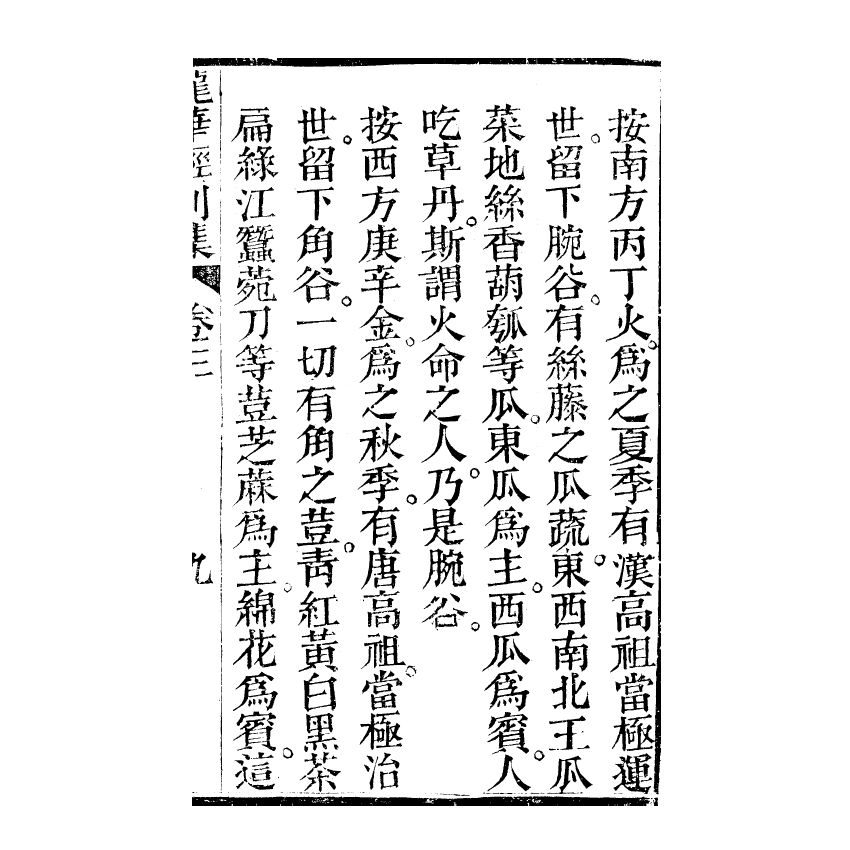 按南方丙丁火。爲之夏季有漢高祖當極運
世。留下腕谷。有絲藤之瓜蔬。東西南北王瓜
菜地絲香葫瓠等瓜。東瓜爲主。西瓜爲賓。人
吃草丹。斯謂火命之人。乃是腕谷。
按西方庚辛金。爲之秋季。有唐高祖。當極治
世。留下角谷。一切有角之荳。靑紅黃白黑茶
扁綠江蠶菀刀等荳芝蔴爲主。綿花爲賓。這
龍華經刂集 卷三 九